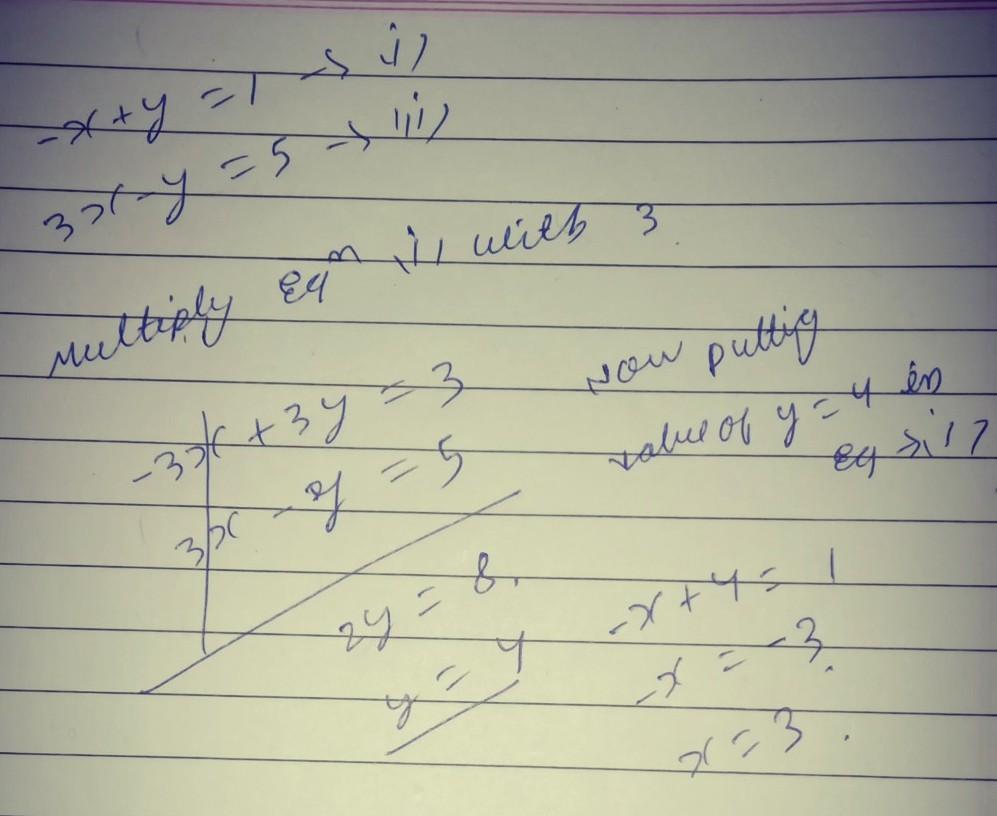 -x + y = 1 → i)
3x - y = 5 → ii)
Multiply Eqn i) with 3.
-3x + 3y = 3
3x - y = 5
2y = 8.
y = 4
Now putting
value of y = 4 in
eq → i)
-x + 4 = 1
-x = -3.
x = 3.